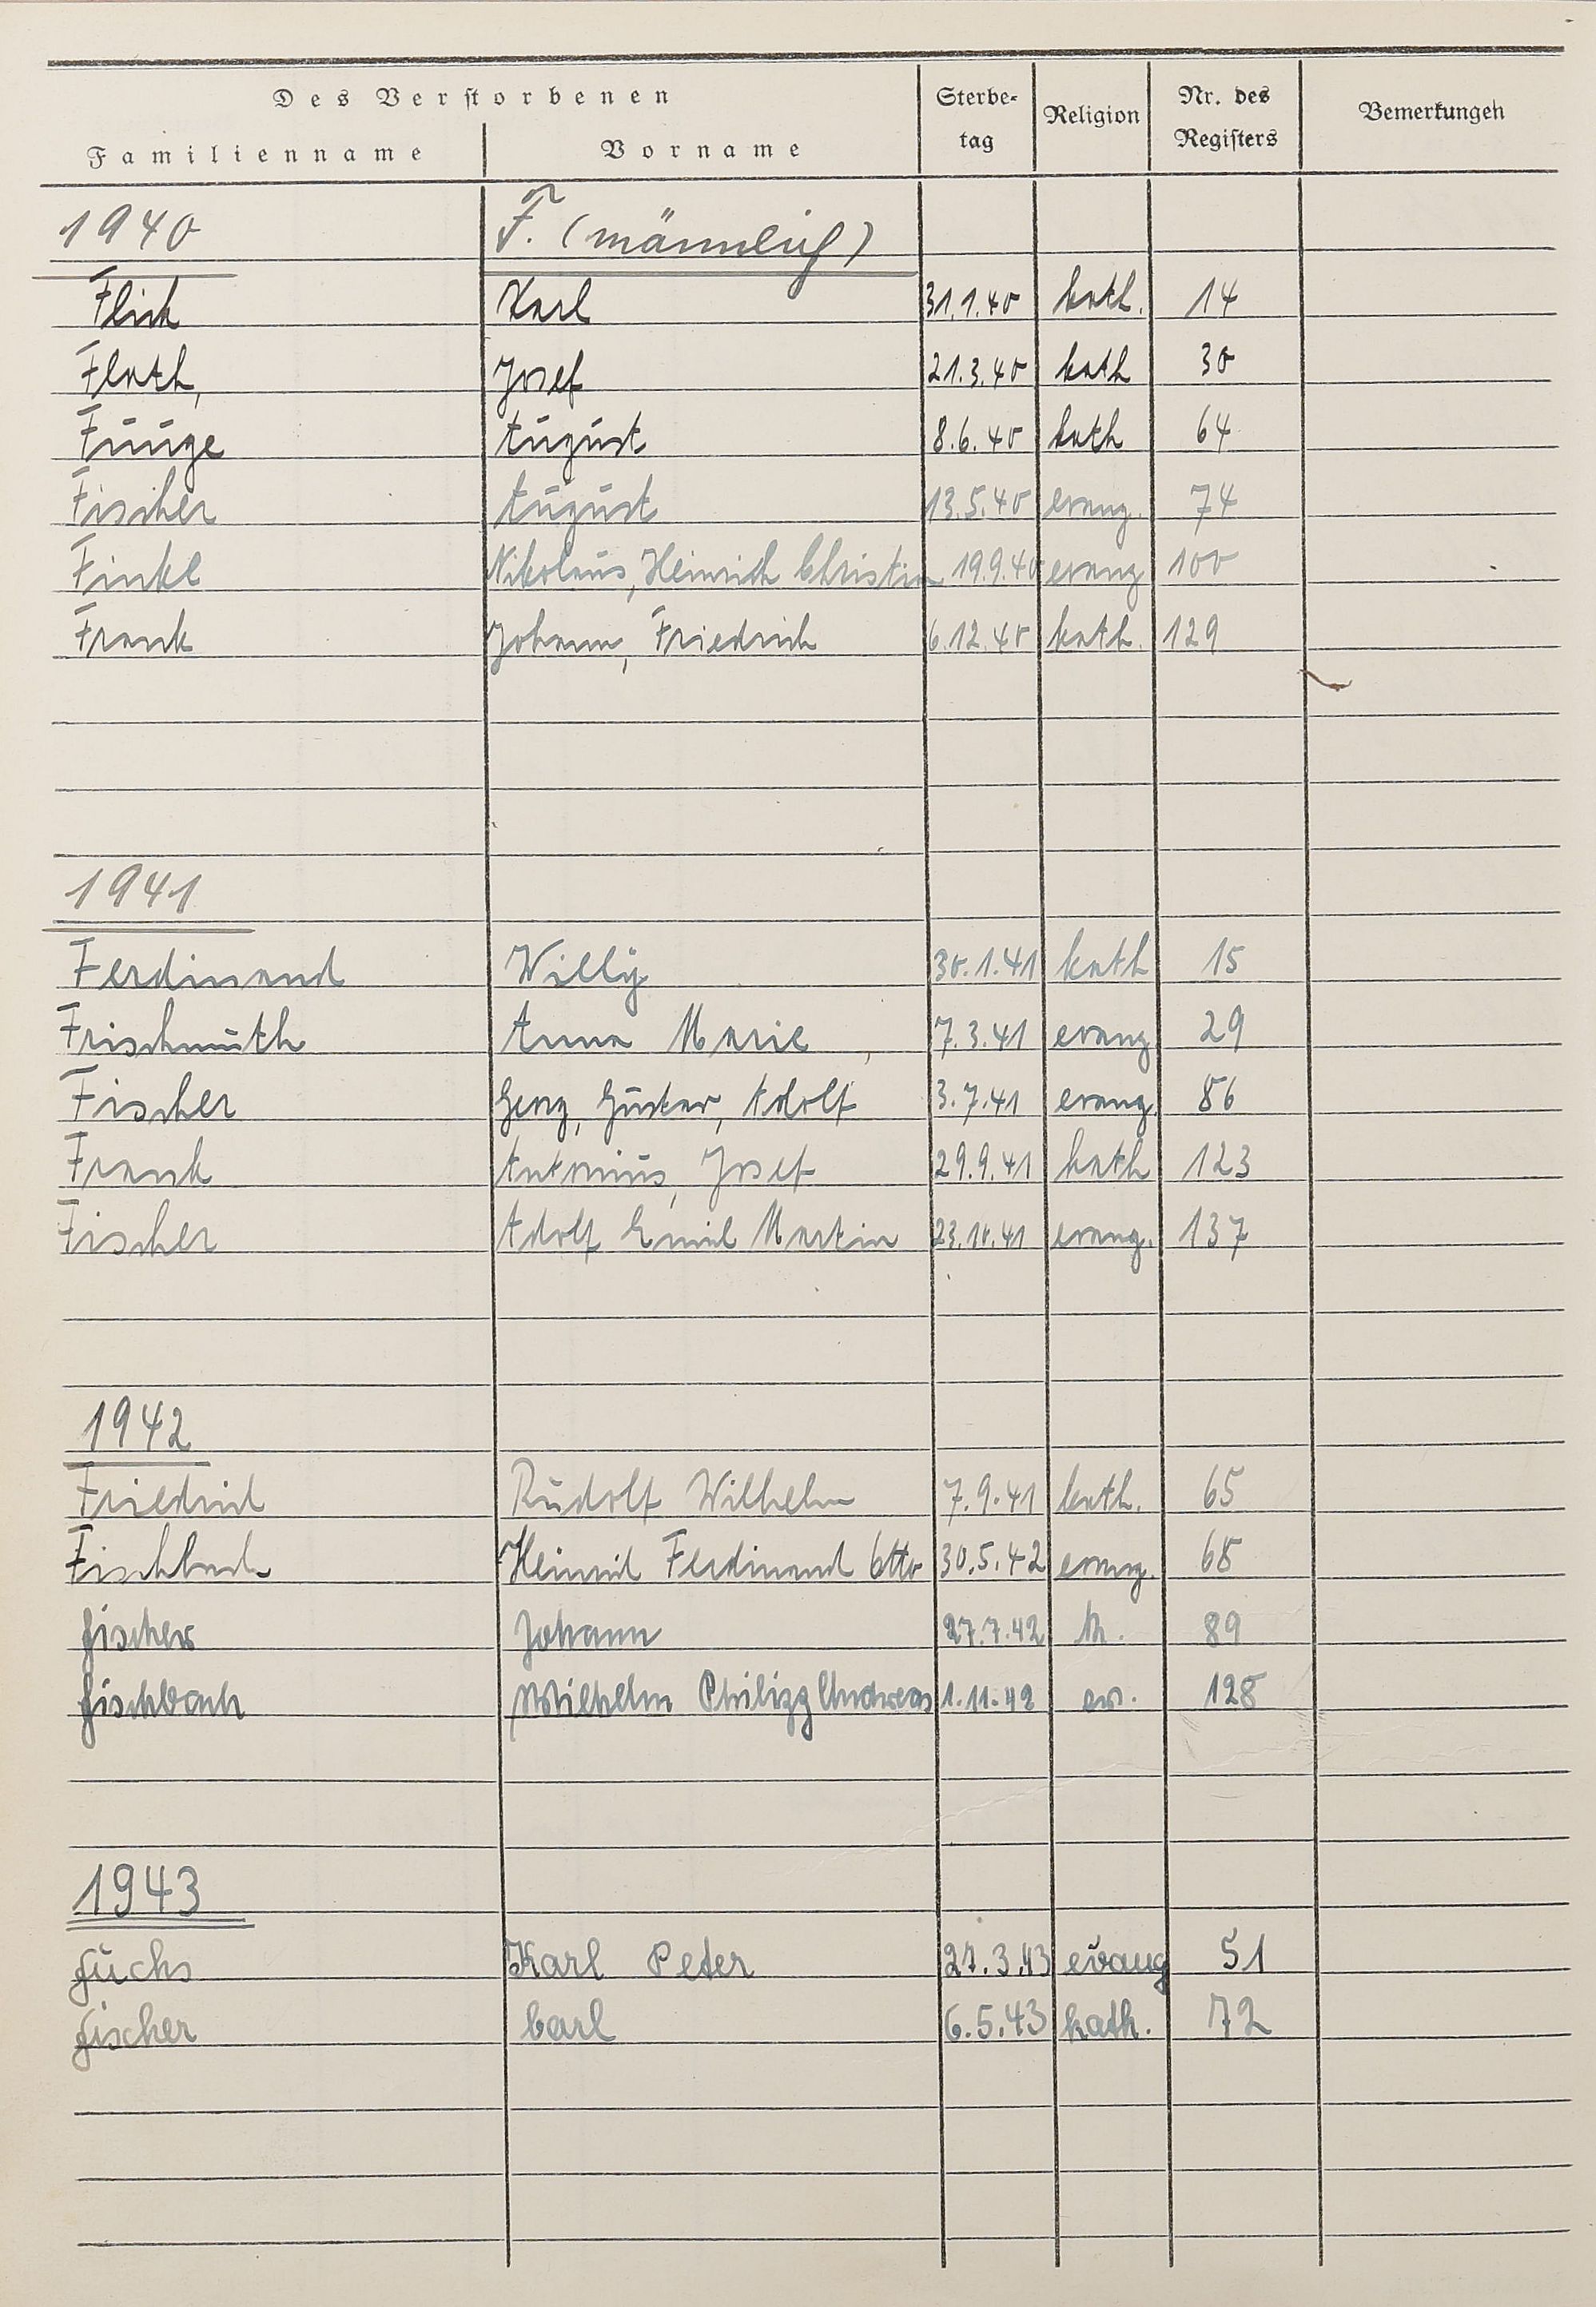 Des Verstorbenen
Familienname Vorname Sterbe-tag Religion Nr. des Registers Bemerkungen
1940 F. (männlich)
Flick Karl 31.1.40 kath. 14
Flath, Josef 21.3.40 kath 30
August 8.6.40 kath 64
Fischer August 13.5.40 evang. 74
Finke Nikolaus, Heinrich Christian 19.9.40 evang 100
Frank Johann, Friedrich 6.12.40 kath. 129
1941
Ferdinand Willy 30.1.41 kath 15
Frischmuth Anna Marie 7.3.41 evang 29
Fischer Georg, Gustav, Adolf 3.7.41 evang. 86
Frank Antonius, Josef 29.9.41 kath 123
Fischer Adolf Emil Martin 23.10.41 evang. 137
1942
Friedrich Rudolf Wilhelm 7.9.41 kath. 65
Fischbach Heinrich Ferdinand Otto 30.5.42 evang. 68
Fischer Johann 27.7.42 k. 89
Fischbach Wilhelm Philipp Andreas 1.11.42 ev. 128
1943
Fuchs Karl Peter 27.3.43 evang 51
Fischer Carl 6.5.43 kath. 72